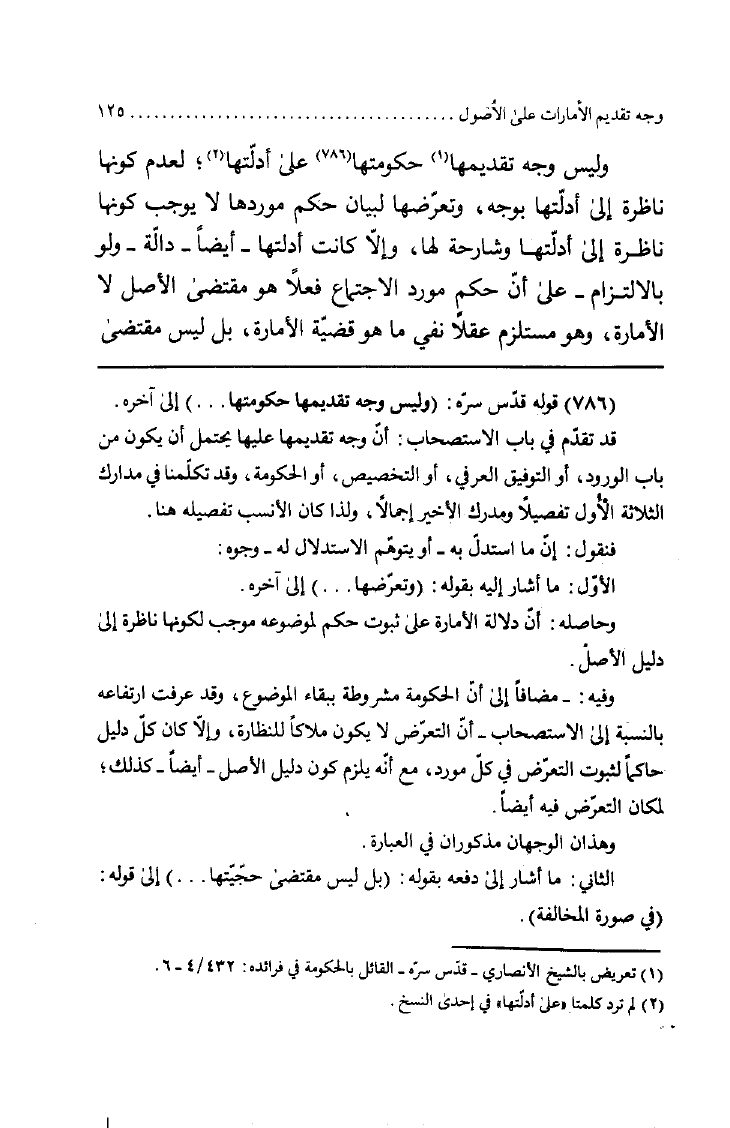 وجه تقديم الأمارات علىٰ الأُصول ........................................ ١٢٥
وليس وجه تقديمها(١) حكومتها(٧٨٦) علىٰ أدلّتها(٢)؛ لعدم كونها
ناظرة إلىٰ أدلّتها بوجه، وتعرّضها لبيان حكم موردها لا يوجب كونها
ناظرة إلىٰ أدلّتها وشارحة لها، وإلّا كانت أدلتها ـ أيضاً ـ دالّة ـ ولو
بالالتزام ـ علىٰ أنّ حكم مورد الاجتماع فعلًا هو مقتضىٰ الأصل لا
الأمارة، وهو مستلزم عقلًا نفي ما هو قضيّة الأمارة، بل ليس مقتضىٰ
(٧٨٦) قوله قدّس سرّه: (وليس وجه تقديمها حكومتها...) إلىٰ آخره.
قد تقدّم في باب الاستصحاب: أنّ وجه تقديمها عليها يحتمل أن يكون من
باب الورود، أو التوفيق العرفي، أو التخصيص، أو الحكومة، وقد تكلّمنا في مدارك
الثلاثة الأُول تفصيلًا ومدرك الأخير إجمالًا، ولذا كان الأنسب تفصيله هنا.
فنقول: إنّ ما استدلّ به ـ أو يتوهّم الاستدلال له ـ وجوه:
الأوّل: ما أشار إليه بقوله: (وتعرّضها...) إلىٰ آخره.
وحاصله: أنّ دلالة الأمارة علىٰ ثبوت حكم لموضوعه موجب لكونها ناظرة إلىٰ
دليل الأصل.
وفيه: ـ مضافاً إلىٰ أنّ الحكومة مشروطة ببقاء الموضوع، وقد عرفت ارتفاعه
بالنسبة إلىٰ الاستصحاب ـ أنّ التعرّض لا يكون ملاكاً للنظارة، وإلّا كان كلّ دليل
حاكماً لثبوت التعرّض في كلّ مورد، مع أنّه يلزم كون دليل الأصل ـ أيضاً ـ كذلك؛
لمكان التعرّض فيه أيضاً.
وهذان الوجهان مذكوران في العبارة.
الثاني: ما أشار إلىٰ دفعه بقوله: (بل ليس مقتضىٰ حجّيّتها...) إلىٰ قوله:
(في صورة المخالفة).
(١) تعريض بالشيخ الأنصاري ـ قدّس سرّه ـ القائل بالحكومة في فرائده: ٤/٤٣٢ ـ ٦.
(٢) لم ترد كلمتا «علىٰ أدلّتها» في إحدىٰ النسخ.